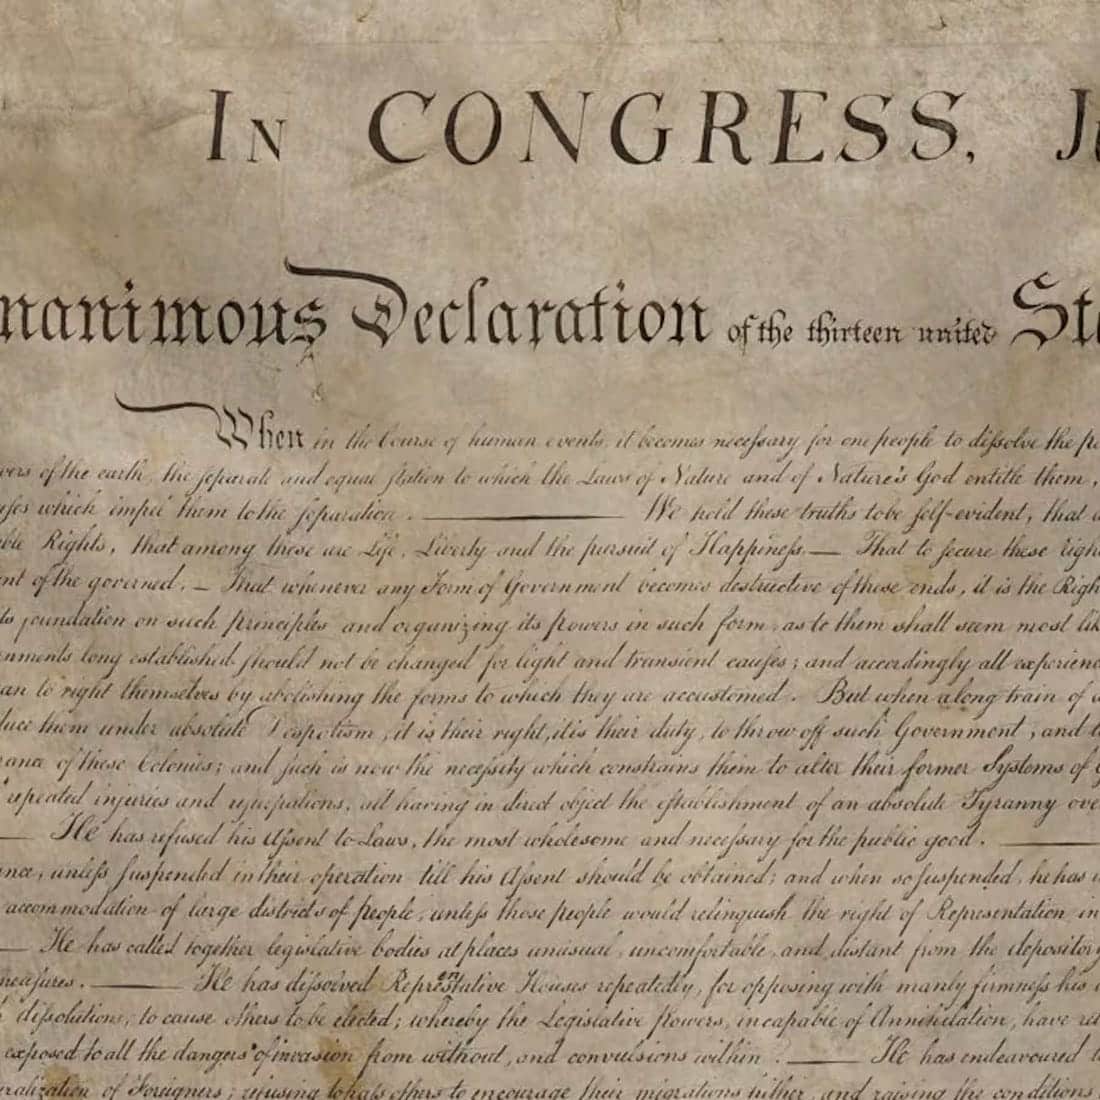 In CONGRESS, Ju
nanimous Declaration of the thirteen united Sta
When in the Course of human events, it becomes necessary for one people to dissolve the po
wers of the earth, the separate and equal station to which the Laws of Nature and of Nature's God entitle them,
uses which impel them to the separation. — We hold these truths to be self-evident, that a
ble Rights, that among these are Life, Liberty and the pursuit of Happiness. — That to secure these righ
nt of the governed. — That whenever any Form of Government becomes destructive of these ends, it is the Righ
ts foundation on such principles and organizing its powers in such form, as to them shall seem most lik
rnments long established should not be changed for light and transient causes; and accordingly all experienc
an to right themselves by abolishing the forms to which they are accustomed. But when a long train of a
duce them under absolute Despotism, it is their right, it is their duty, to throw off such Government, and t
rance of these Colonies; and such is now the necessity which constrains them to alter their former Systems of G
repeated injuries and usurpations, all having in direct object the establishment of an absolute Tyranny ove
— He has refused his Assent to Laws, the most wholesome and necessary for the public good. —
nce, unless suspended in their operation till his Assent should be obtained; and when so suspended, he has u
accommodation of large districts of people, unless those people would relinquish the right of Representation in
— He has called together legislative bodies at places unusual, uncomfortable, and distant from the depository
measures. — He has dissolved Representative Houses repeatedly, for opposing with manly firmness his i
dissolutions, to cause others to be elected; whereby the Legislative powers, incapable of Annihilation, have ret
exposed to all the dangers of invasion from without, and convulsions within. — He has endeavoured t
uralization of Foreigners; refusing to pass others to encourage their migrations hither, and raising the conditions